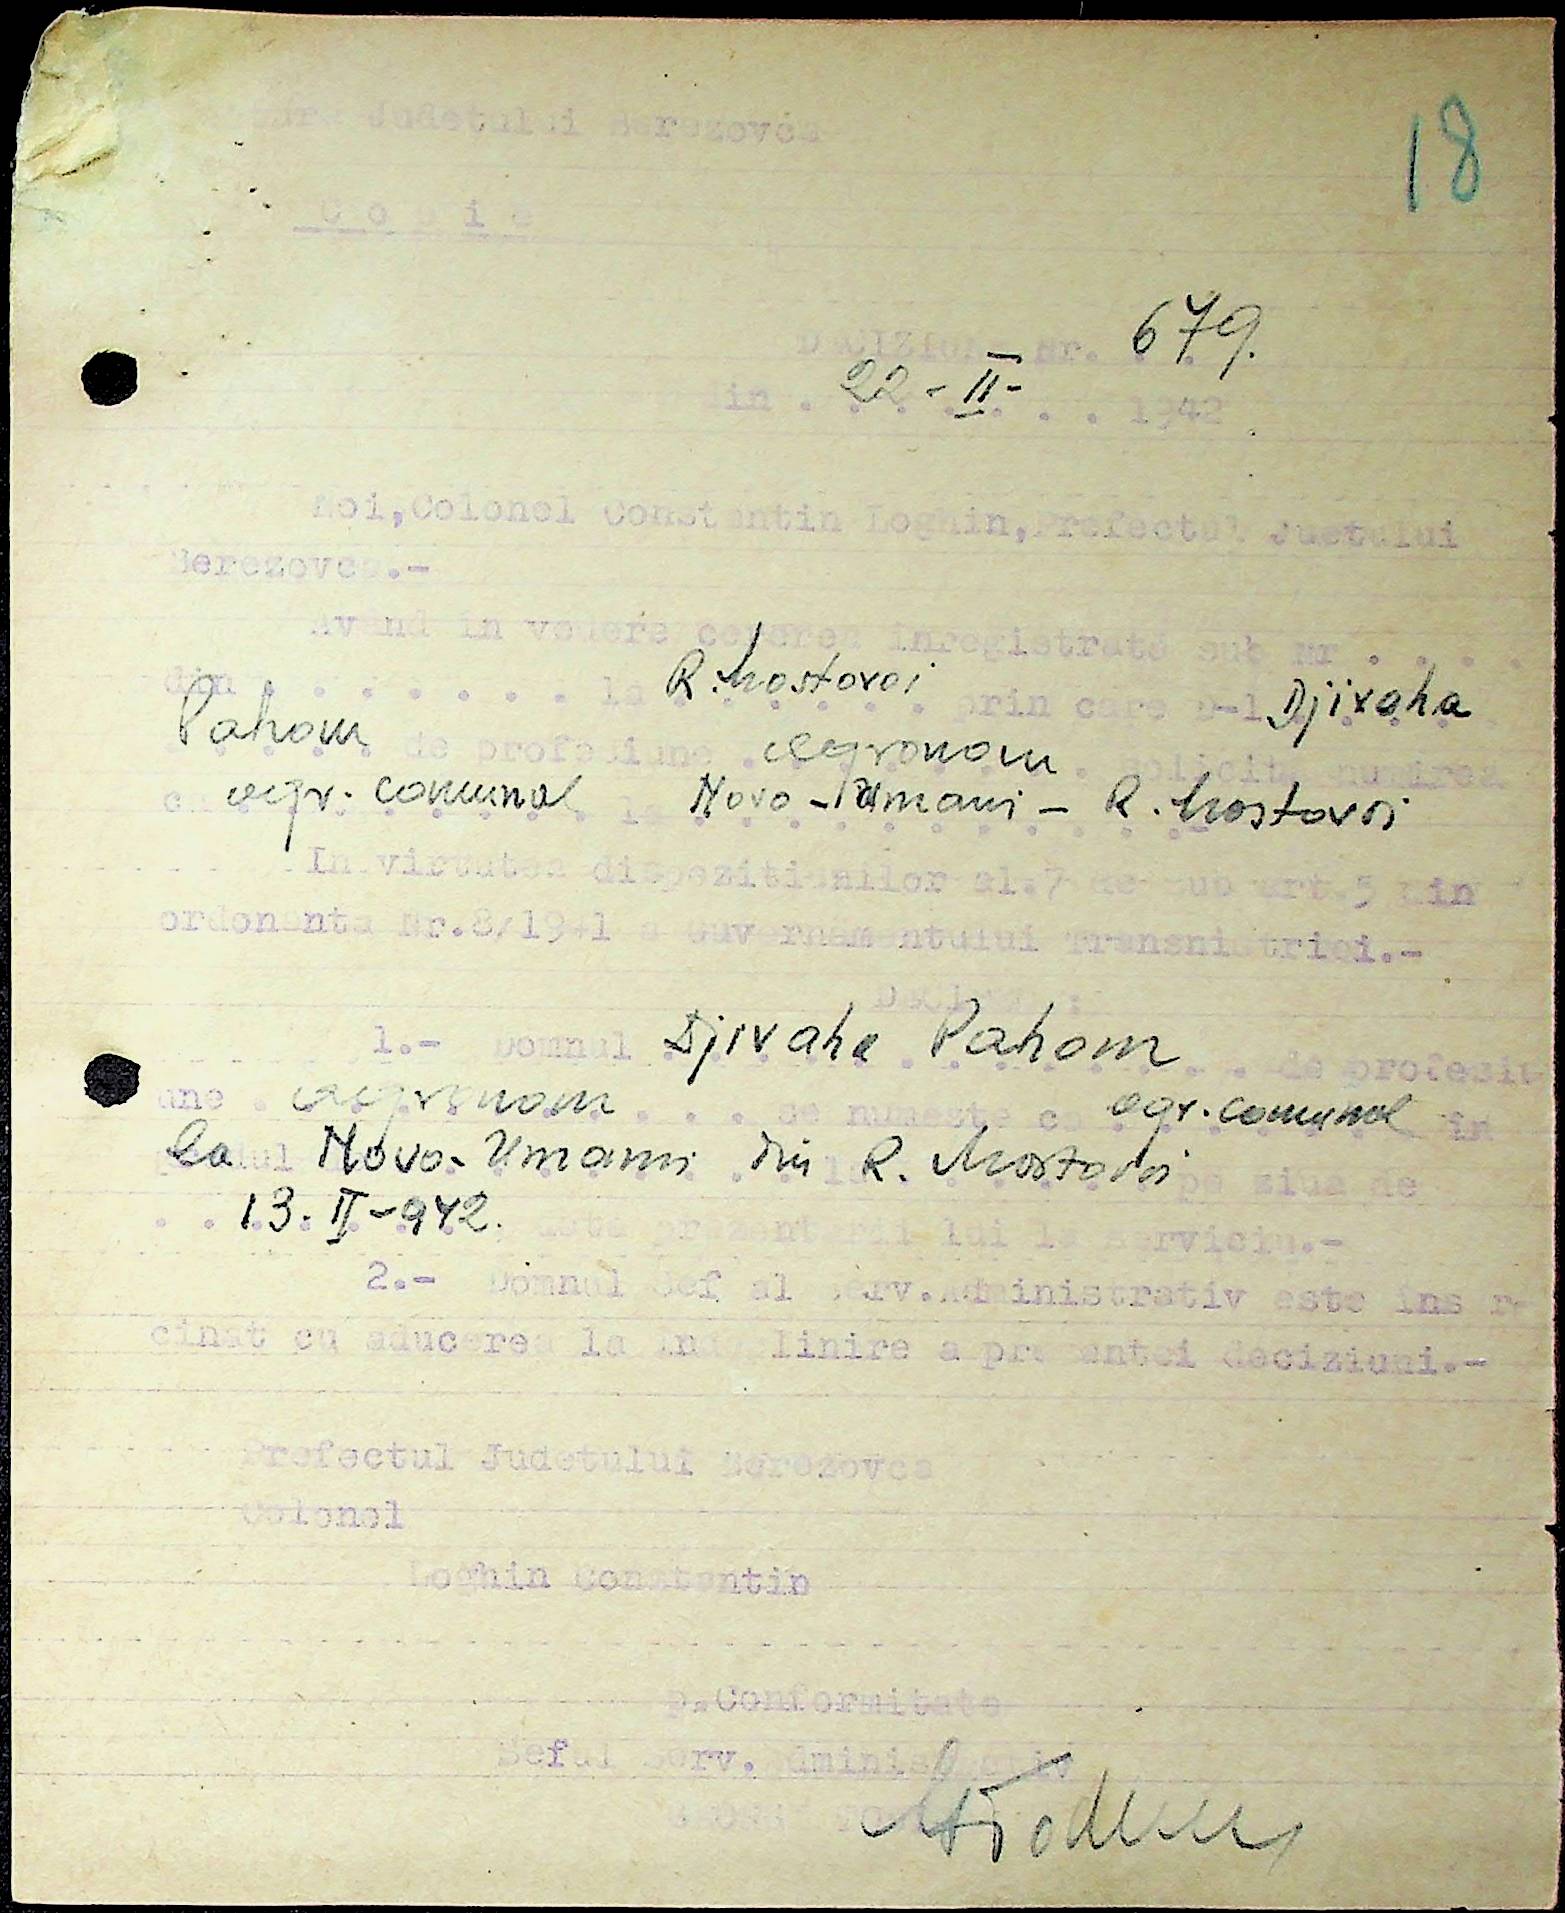 18
Judetului Berezovca
Copie
DECIZIUNE Nr. 679.
din . 22 - II - . . 1942
Noi,Colonel Constantin Loghin,Prefectul Juetului
Berezovca.-
Avand in vedere cererea inregistrată sub Nr . . . .
din . . . . . . . la R. Mostovoi prin care D-l Djivaha
Pahom de profesiune agronom solicita numirea
ca agr. comunal la Novo-Umani - R. Mostovoi
In virtutea dispozitiunilor al.7 de sub art.5 din
ordonanta Nr.8/1941 a Guvernamantului Transnistriei.-
1.- Domnul Djivaha Pahom de profesiu
une . agronom . . . se numeste ca agr. comunal in
la Novo-Umani din R. Mostovoi pe ziua de
13. II-942. data prezentarii lui la serviciu.-
2.- Domnul Sef al Serv.Administrativ este ins r
cinat cu aducerea la indeplinire a prezentei deciziuni.-
Prefectul Judetului Berezovca
Colonel
Loghin Constantin
p.Conformitate
Seful Serv. Administrativ